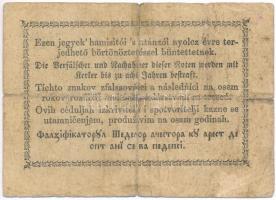 Ezen jegyek' hamisítói 's utánzói nyolcz évre ter-
jedhető börtönöztetéssel büntettetnek.
Die Verfälscher und Nachahmer dieser Noten werden mit
Kerker bis zu acht Jahren bestraft.
Tíchto znakov zfalšovníci a následníci na osem
rokov
Ovih ceduljah izkrivitelji i spotvoritelji kazne se
utamničenjem, produživim na osam godinah.
Фалзіфікаторул Шеделор ачестора ку арест де
опт ані се ва педепсі.